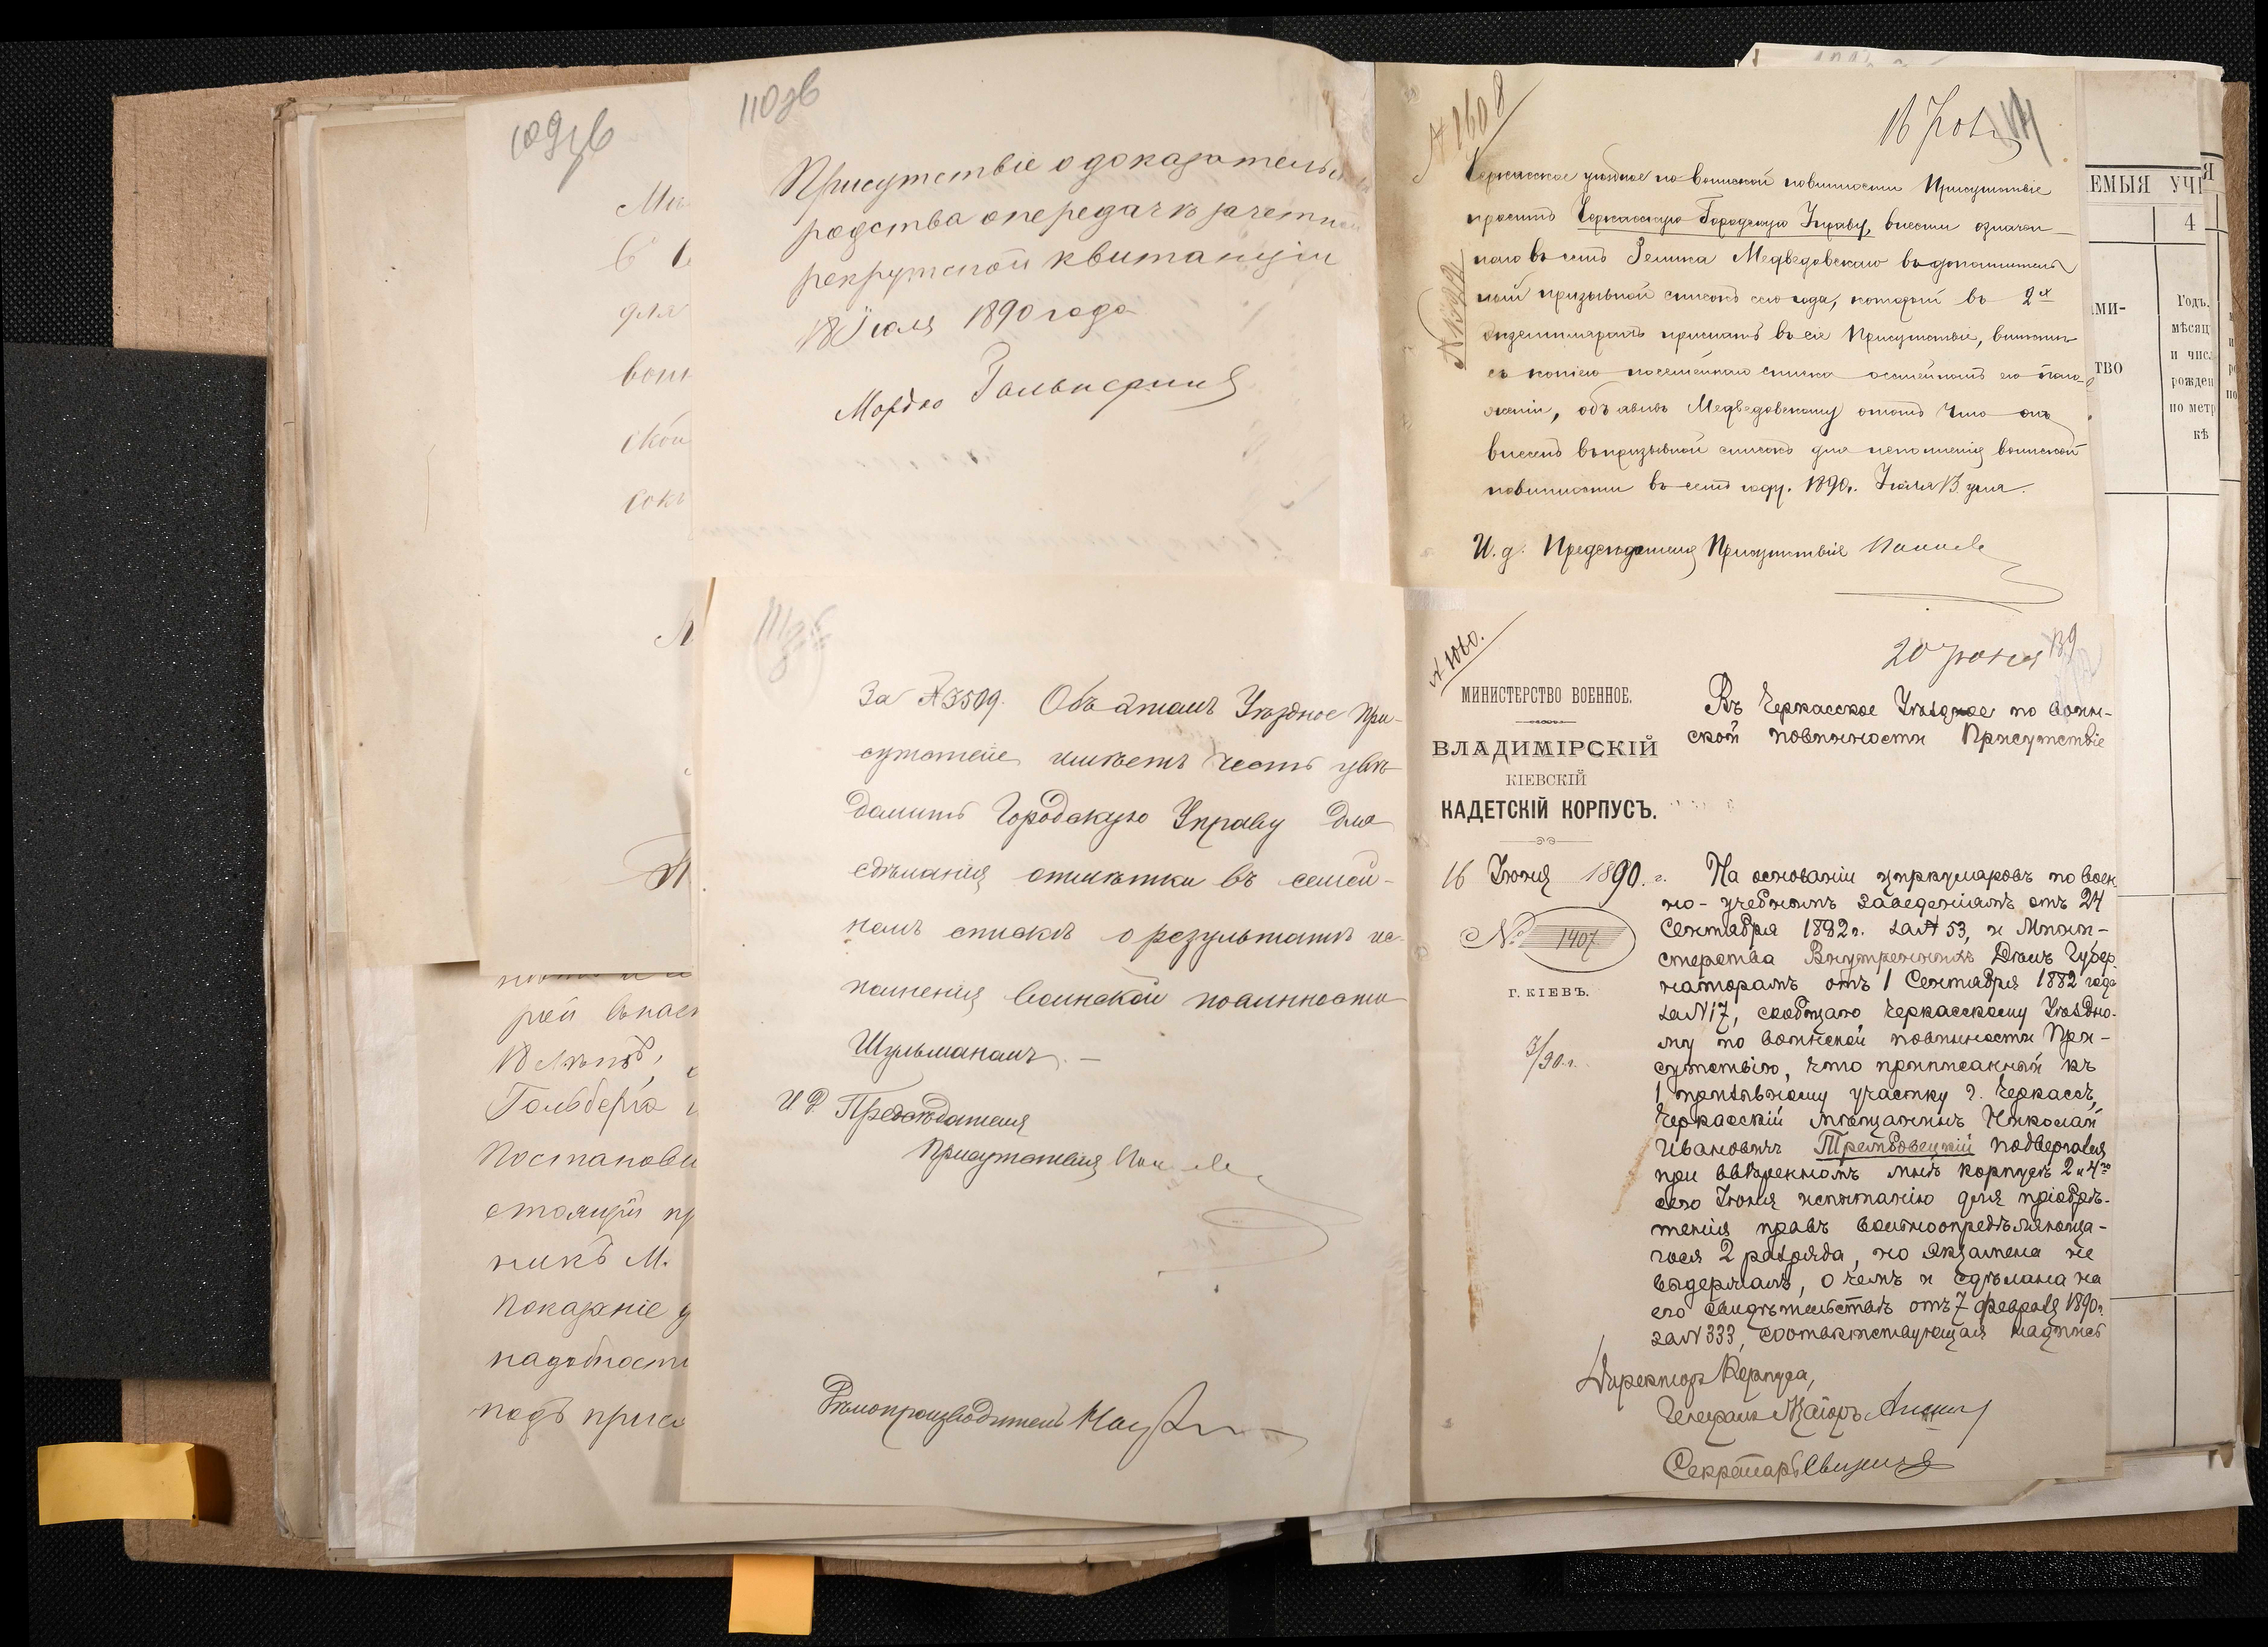 109зв
вои
110зв
Присутствіе о доказательс
родства о передачѣ зачетной
рекрутской квитанціи
18 Іюля 1890 года
Мордко
№ 1608
16
Черкасское уѣздное по воинской повинности Присутствіе
проситъ Черкасскую Городскую Управу, внести означен
наго въ семъ Зелика Медведовскаго въ дополнитель
ный призывной списокъ сего года, который въ 2х
экземплярахъ прислать въ сіе Присутствіе, вмѣстѣ
съ копіею посемейнаго списка о семейномъ его поло
женіи, объявивъ Медведовскому о томъ что онъ
внесенъ въ призывной списокъ для исполненія воинской
повинности въ семъ году. 1890 г. Іюля 13 дня.
И. д. Предсѣдателя Присутствія
ЕМЫЯ УЧ
4
МИ-
ТВО
Годъ,
мѣсяц
и чис
рожден
по метр
кѣ
рей
18 лѣтъ,
Гольберга
Постанови
стоящій пр
никъ М.
Показаніе
надобности
подъ прися
За № 3509. Объ этомъ Уѣздное При-
сутствіе имѣетъ честь увѣ-
домить Городскую Управу для
сдѣланія отмѣтки въ семей-
номъ спискѣ о результатѣ ис-
полненія воинской повинности
Шульманомъ. —
И Д Предсѣдателя
Присутствія
Дѣлопроизводитель
№ 1060.
20 Іюня
139
МИНИСТЕРСТВО ВОЕННОЕ.
ВЛАДИМІРСКІЙ
КІЕВСКІЙ
КАДЕТСКІЙ КОРПУСЪ.
16 Іюня 1890 г.
№ 1407
Г. КІЕВЪ.
3/90 г.
Въ Черкасское Уѣздное по воин-
ской повинности Присутствіе
На основаніи циркуляровъ по воен
но-учебнымъ заведеніямъ отъ 24
Сентября 1882 г. за № 53, и Мини-
стерства Внутреннихъ Дѣлъ Губер
наторамъ отъ 1 Сентября 1882 года
за № 17, сообщаю Черкасскому Уѣздно-
му по воинской повинности При-
сутствію, что приписанный къ
1 призывному участку г. Черкассъ,
Черкасскій мѣщанинъ Николай
Ивановичъ Трембовецкій подвергался
при ввѣренномъ мнѣ корпусѣ 2 и 4го
сего Іюня испытанію для пріобрѣ-
тенія правъ вольноопредѣляюща-
гося 2 разряда, но экзамена не
выдержалъ, о чемъ и сдѣлана на
его свидѣтельствѣ отъ 7 февраля 1890 г.
за № 333, соотвѣтствующая надпись
Директоръ Корпуса,
Генералъ-Маіоръ
Секретарь